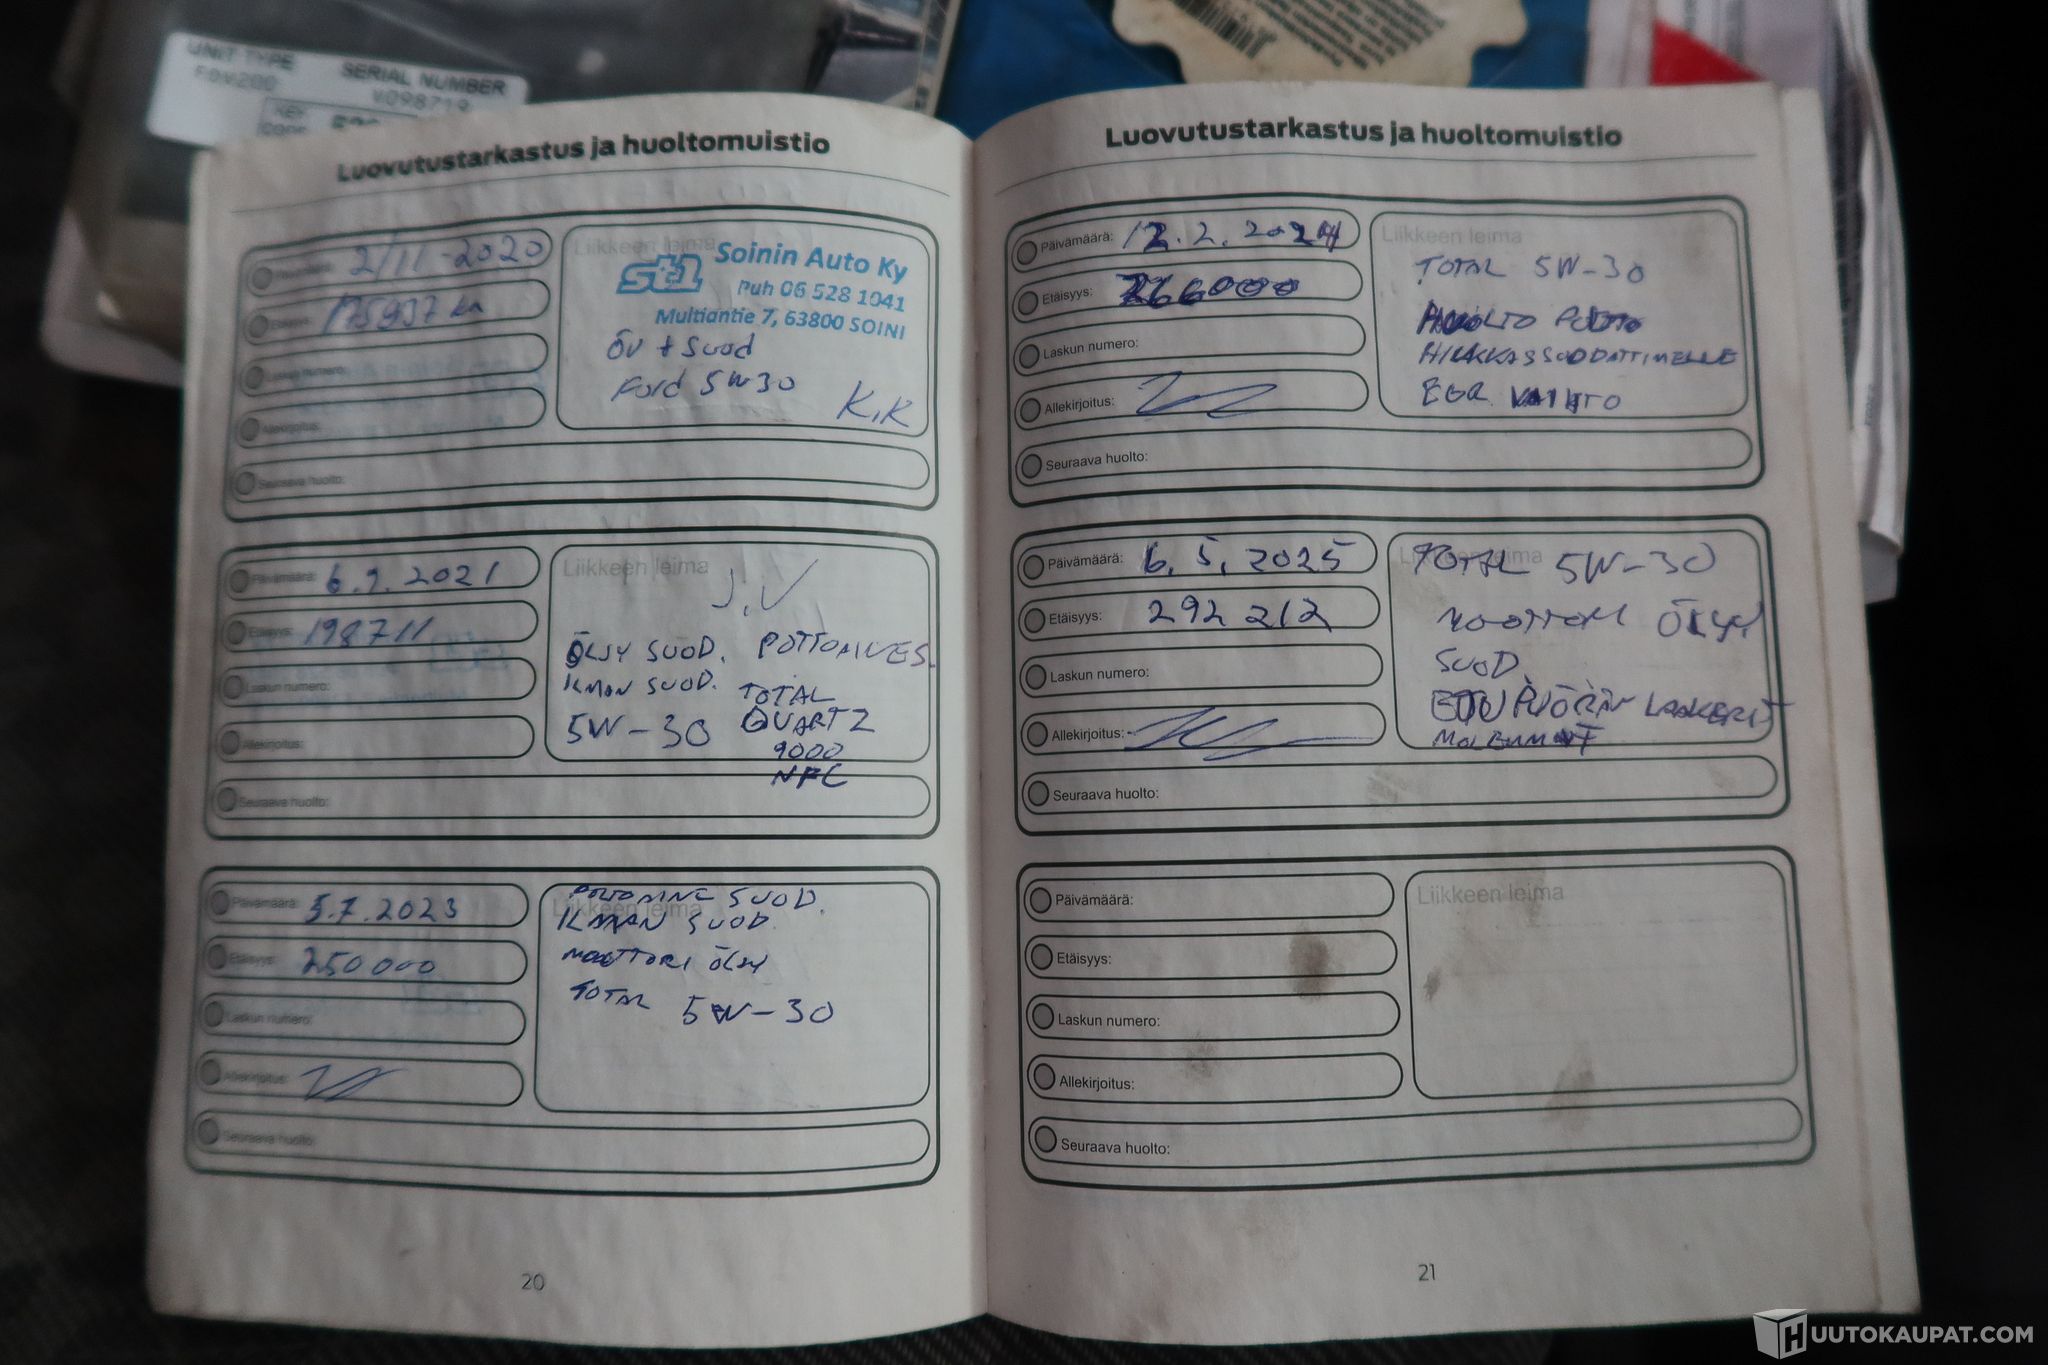 UNIT TYPE
SERIAL NUMBER
V098719
KEY
CODE
Luovutustarkastus ja huoltomuistio
2/11-2020
175937 km
Laskun numero:
Allekirjoitus:
Seuraava huolto:
Liikkeen leima
st1 Soinin Auto Ky
Puh 06 528 1041
Multiantie 7, 63800 SOINI
ÖV + Suod
Ford 5W30
K.K
Päivämäärä: 6.9.2021
Etäisyys: 198711
Laskun numero:
Allekirjoitus:
Seuraava huolto:
Liikkeen leima
J.V
ÖLJY SUOD.
ILMAN SUOD.
5W-30
TOTAL
QUARTZ
9000
NFC
Päivämäärä: 5.7.2023
Etäisyys: 250000
Laskun numero:
Allekirjoitus:
Seuraava huolto:
Liikkeen leima
SUOD.
ILMAN SUOD.
MOOTTORI ÖLJY
TOTAL 5W-30
20
Luovutustarkastus ja huoltomuistio
Päivämäärä: 12.2.2024
Etäisyys: 266000
Laskun numero:
Allekirjoitus:
Seuraava huolto:
Liikkeen leima
TOTAL 5W-30
HUOLTO POLTTO
HIUKKASSUODATTIMELLE
EGR VAIHTO
Päivämäärä: 6.5.2025
Etäisyys: 292212
Laskun numero:
Allekirjoitus:
Seuraava huolto:
Liikkeen leima
TOTAL 5W-30
MOOTTORI ÖLJY
SUOD.
ETU PYÖRÄN LAAKERIT
Päivämäärä:
Etäisyys:
Laskun numero:
Allekirjoitus:
Seuraava huolto:
Liikkeen leima
21
HUUTOKAUPAT.COM